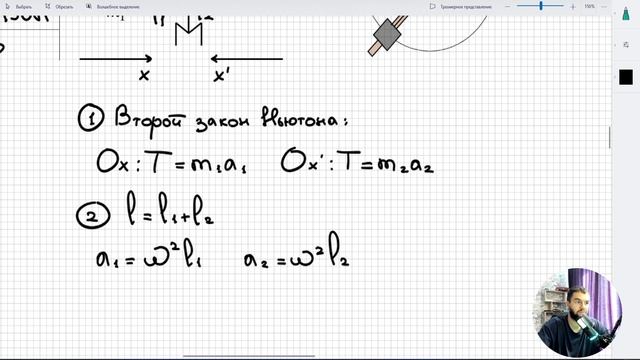 Выбрать Обрезать Волшебное выделение Трехмерное представление 150%
m₁ l₂
x x'
① Второй закон Ньютона:
Ox : T = m₁a₁ Ox' : T = m₂a₂
② l = l₁ + l₂
a₁ = ω²l₁ a₂ = ω²l₂